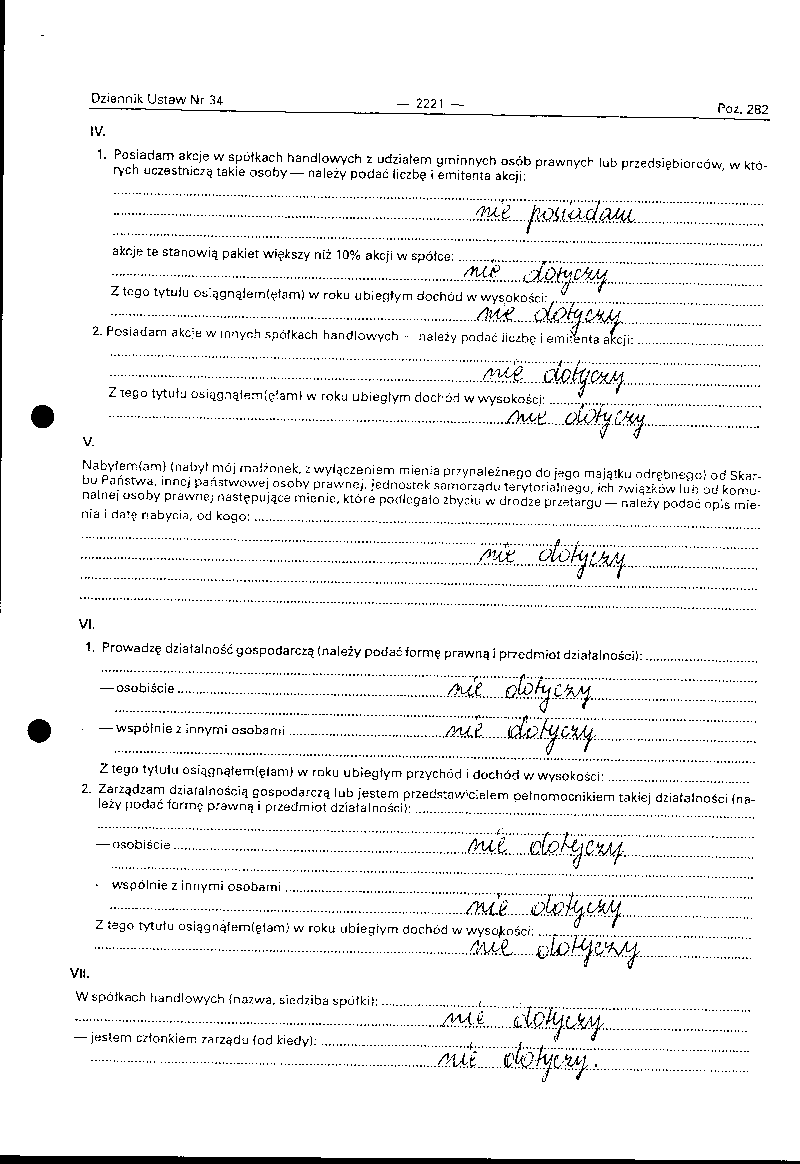 Dziennik Ustaw Nr 34 — 2221 — Poz. 282
IV.
1. Posiadam akcje w spółkach handlowych z udziałem gminnych osób prawnych lub przedsiębiorców, w któ-
rych uczestniczą takie osoby — należy podać liczbę i emitenta akcji:
nie posiadam
akcje te stanowią pakiet większy niż 10% akcji w spółce:
nie dotyczy
Z tego tytułu osiągnąłem(ęłam) w roku ubiegłym dochód w wysokości:
nie dotyczy
2. Posiadam akcje w innych spółkach handlowych - należy podać liczbę i emitenta akcji:
nie dotyczy
Z tego tytułu osiągnąłem(ęłam) w roku ubiegłym dochód w wysokości:
nie dotyczy
V.
Nabyłem(am) (nabył mój małżonek, z wyłączeniem mienia przynależnego do jego majątku odrębnego) od Skar-
bu Państwa, innej państwowej osoby prawnej, jednostek samorządu terytorialnego, ich związków lub od komu-
nalnej osoby prawnej następujące mienie, które podlegało zbyciu w drodze przetargu — należy podać opis mie-
nia i datę nabycia, od kogo:
nie dotyczy
VI.
1. Prowadzę działalność gospodarczą (należy podać formę prawną i przedmiot działalności):
— osobiście nie dotyczy
— wspólnie z innymi osobami nie dotyczy
Z tego tytułu osiągnąłem(ęłam) w roku ubiegłym przychód i dochód w wysokości:
2. Zarządzam działalnością gospodarczą lub jestem przedstawicielem pełnomocnikiem takiej działalności (na-
leży podać formę prawną i przedmiot działalności):
— osobiście nie dotyczy
- wspólnie z innymi osobami
nie dotyczy
Z tego tytułu osiągnąłem(ęłam) w roku ubiegłym dochód w wysokości:
nie dotyczy
VII.
W spółkach handlowych (nazwa, siedziba spółki):
nie dotyczy
— jestem członkiem zarządu (od kiedy):
nie dotyczy.